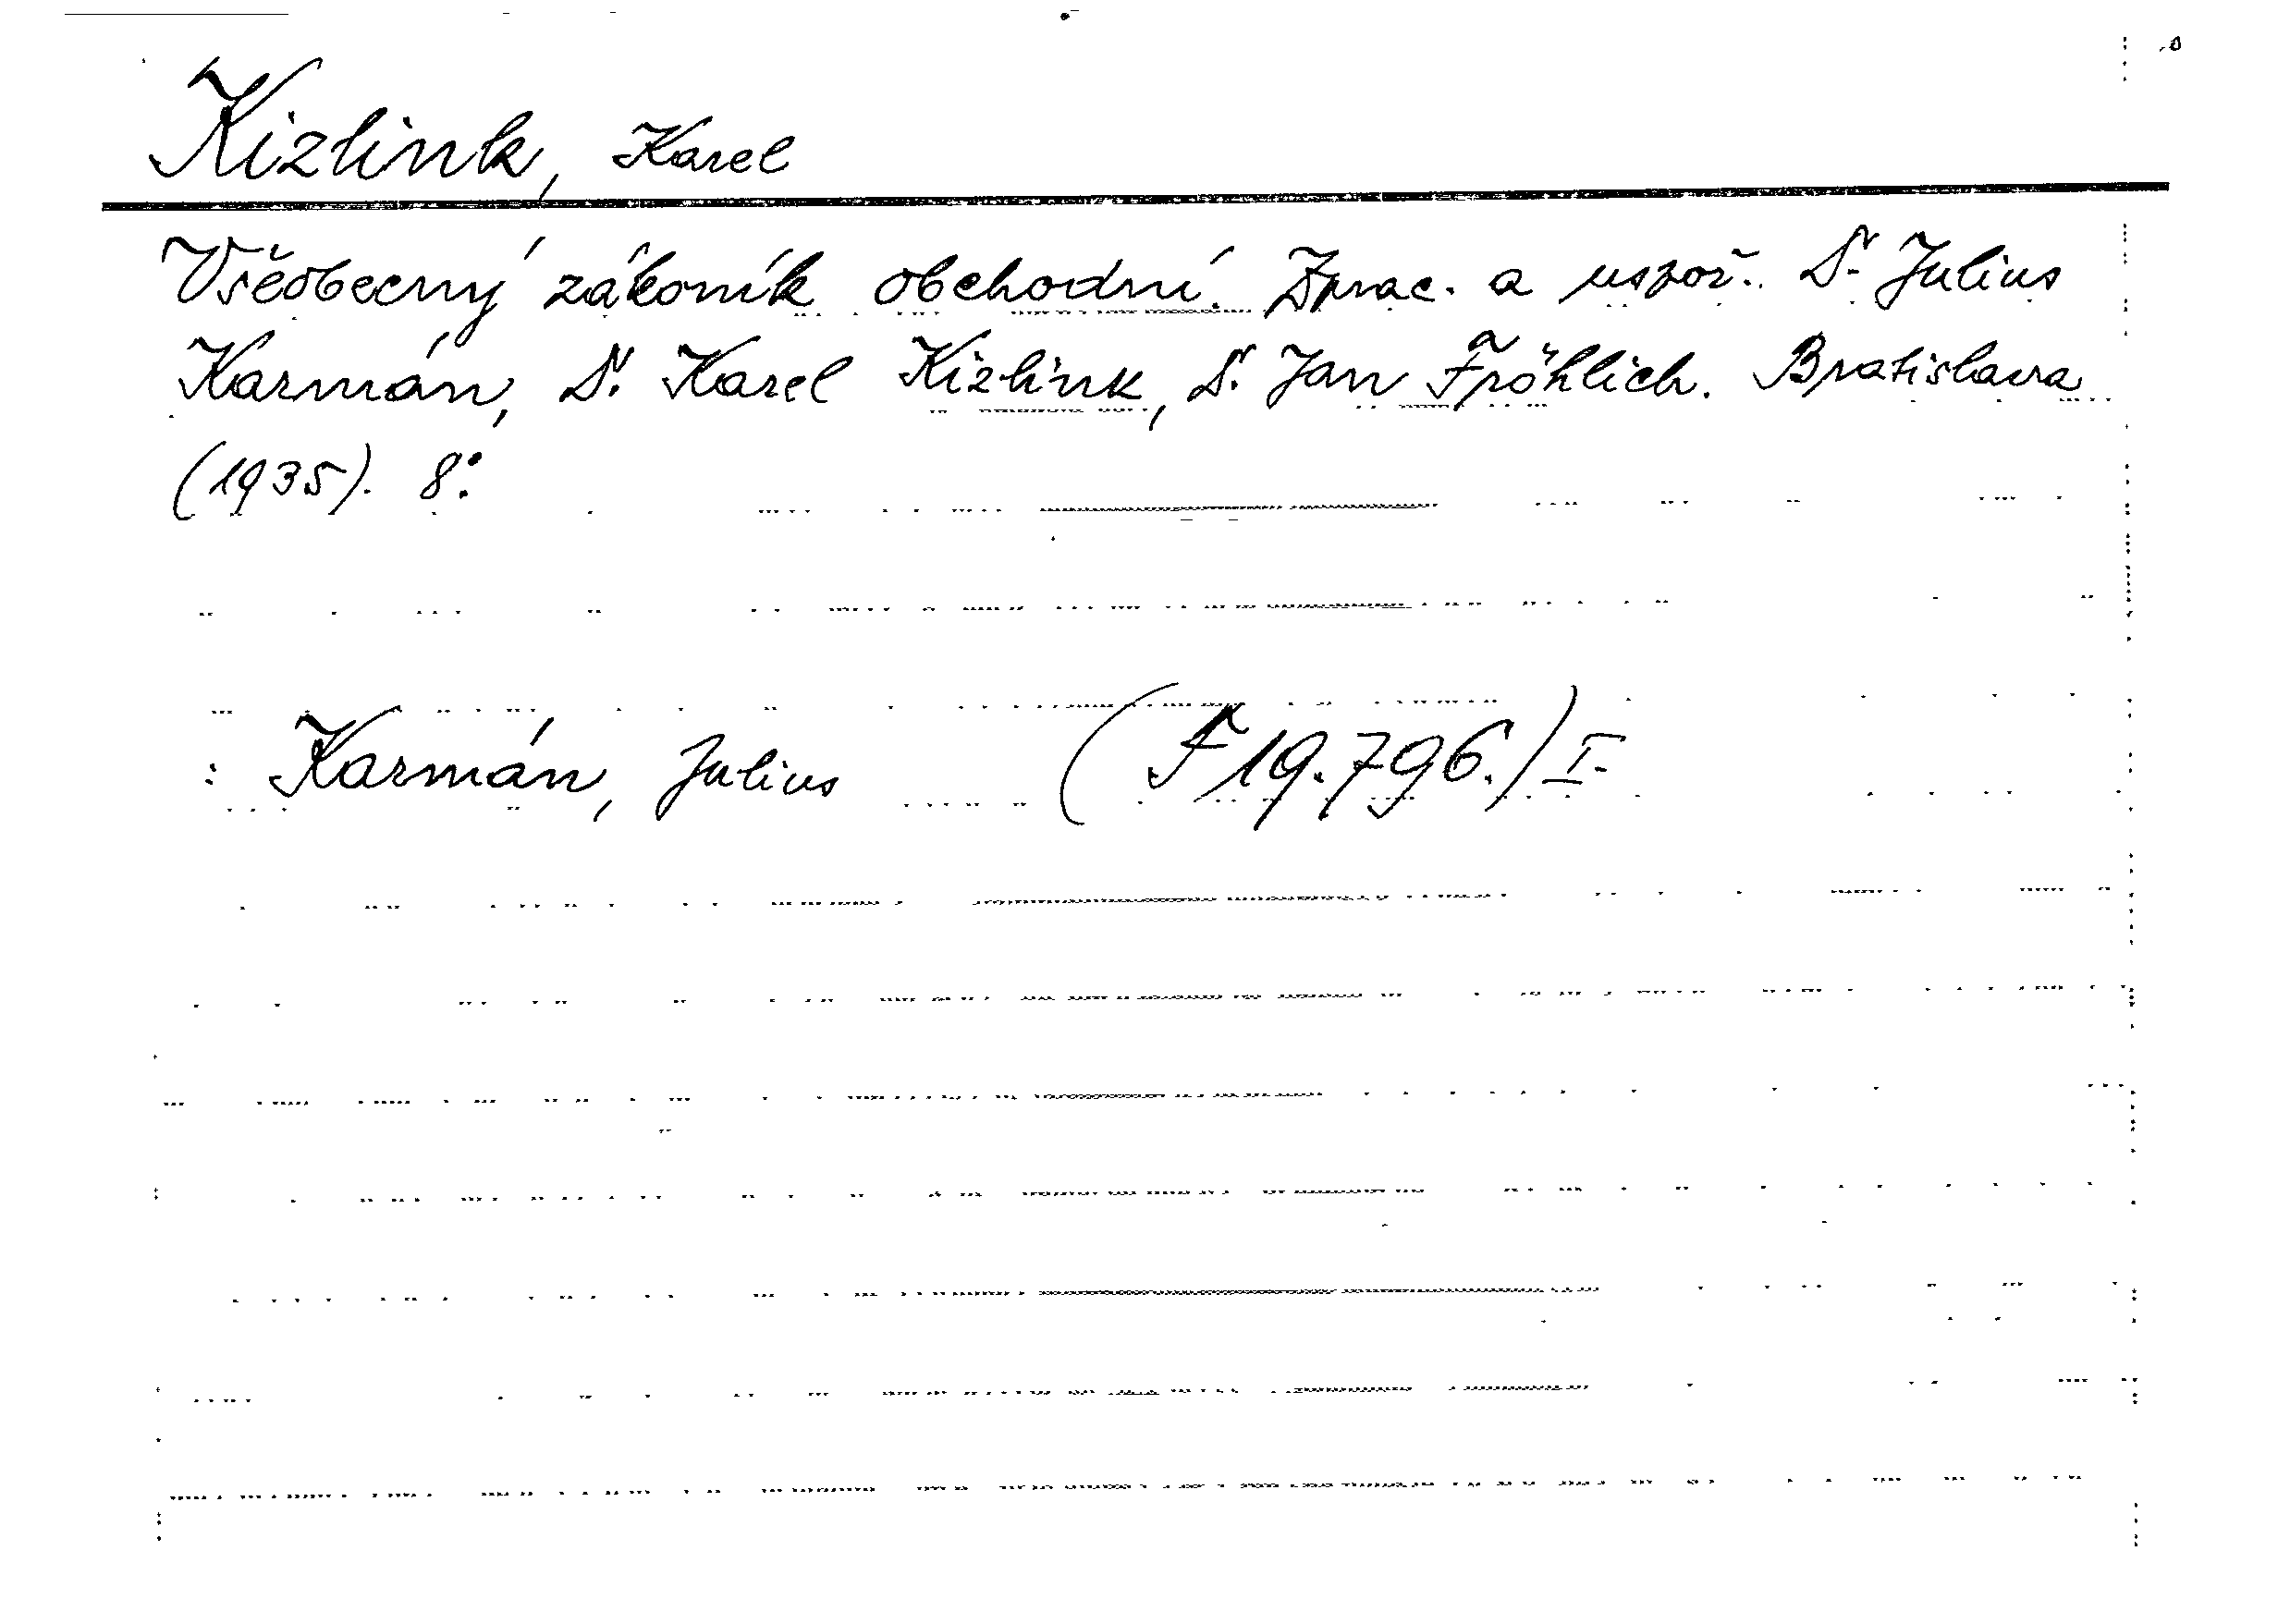 Kizlink, Karel
Všeobecný zákoník obchodní. Zprac. a uspoř. Dr. Julius
Karmán, Dr. Karel Kizlink, Dr. Jan Fröhlich. Bratislava
(1935). 8°.
: Karmán, Julius (F 19.796.) I.